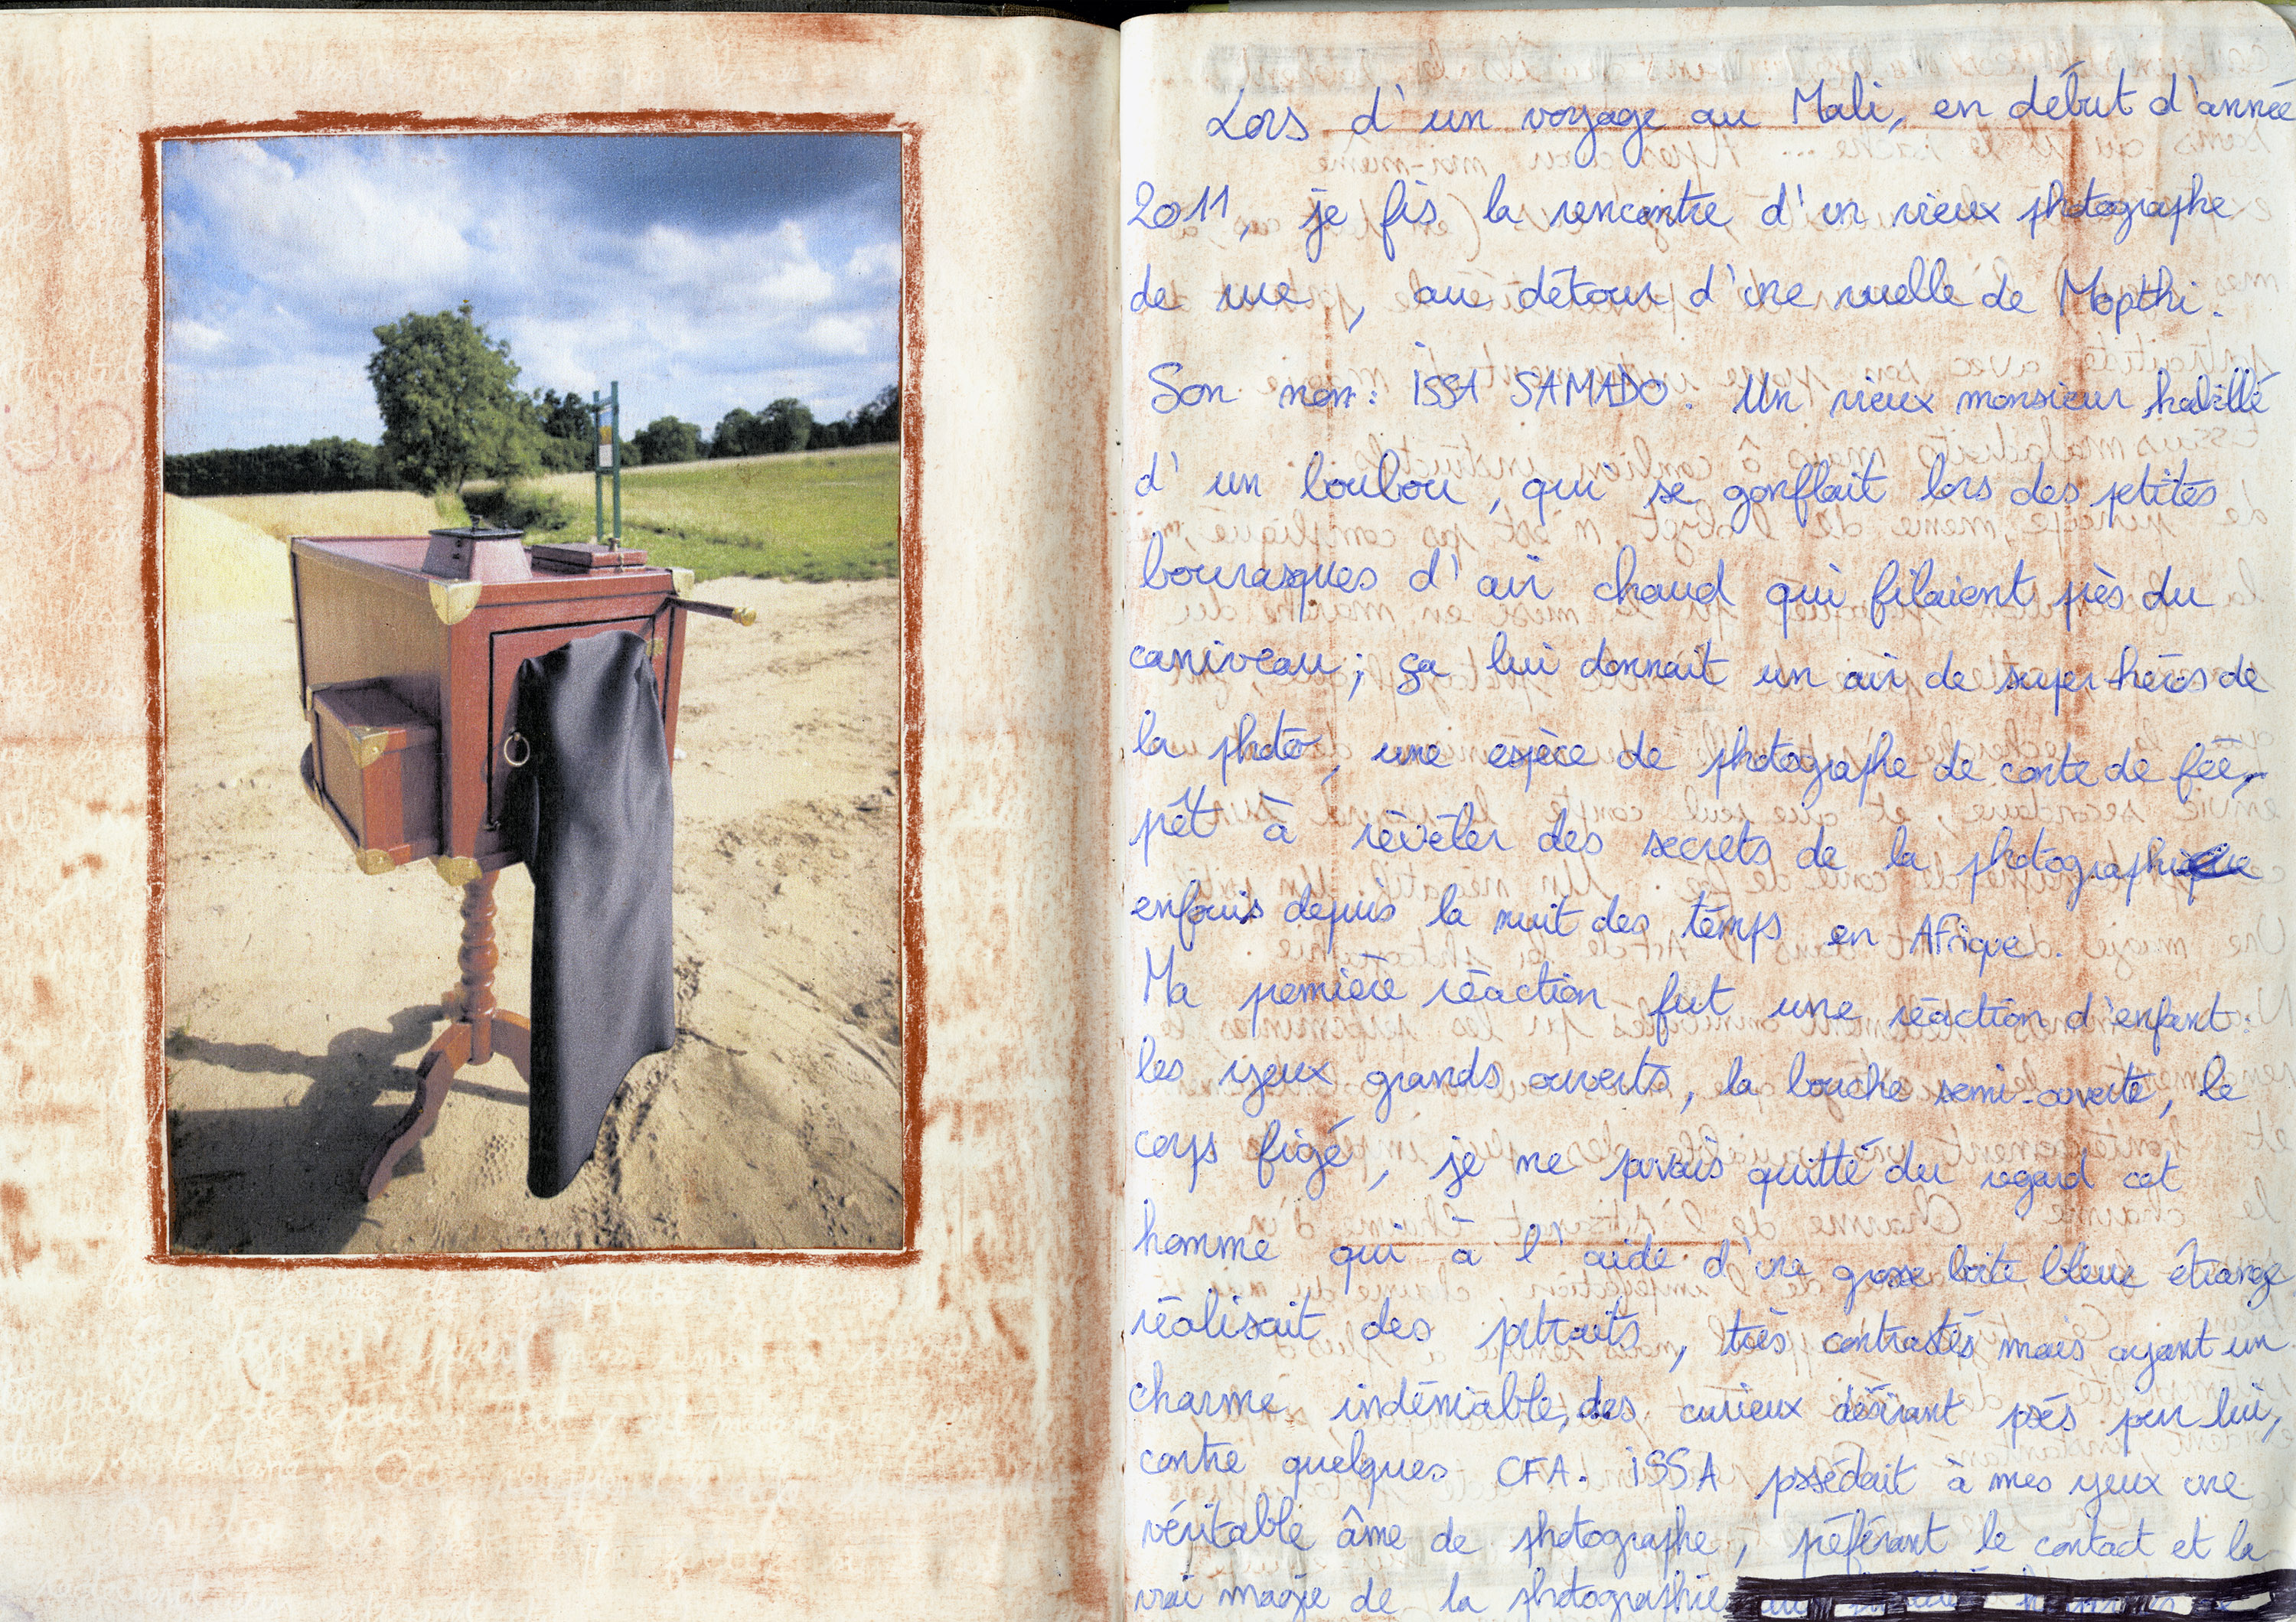 Lors d'un voyage au Mali, en début d'année
2011, je fis la rencontre d'un vieux photographe
de rue, au détour d'une ruelle de Mopthi.
Son nom: ISSA SAMADO. Un vieux monsieur habillé
d'un boubou, qui se gonflait lors des petites
bourasques d'air chaud qui filaient près du
caniveau; ça lui donnait un air de super-héros de
la photo, une espèce de photographe de conte de fée,
prêt à révéler des secrets de la photographie
enfouis depuis la nuit des temps en AFrique.
Ma première réaction fut une réaction d'enfant:
les yeux grands ouverts, la bouche semi-ouverte, le
corps figé, je ne pouvais quitté du regard cet
homme qui à l'aide d'une grosse boite bleue étrange
réalisait des portraits, très contrastés mais ayant un
charme indéniable, des curieux désirant posés pour lui,
contre quelques CFA. ISSA possédait à mes yeux une
véritable âme de photographe, préférant le contact et la
vrai magie de la photographie